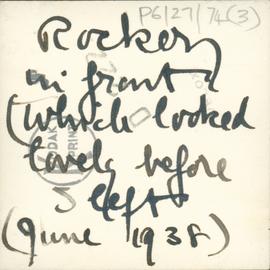 P6/27/74(3)
Rockery
in front
(which looked
lovely before
I left)
(June 1938)